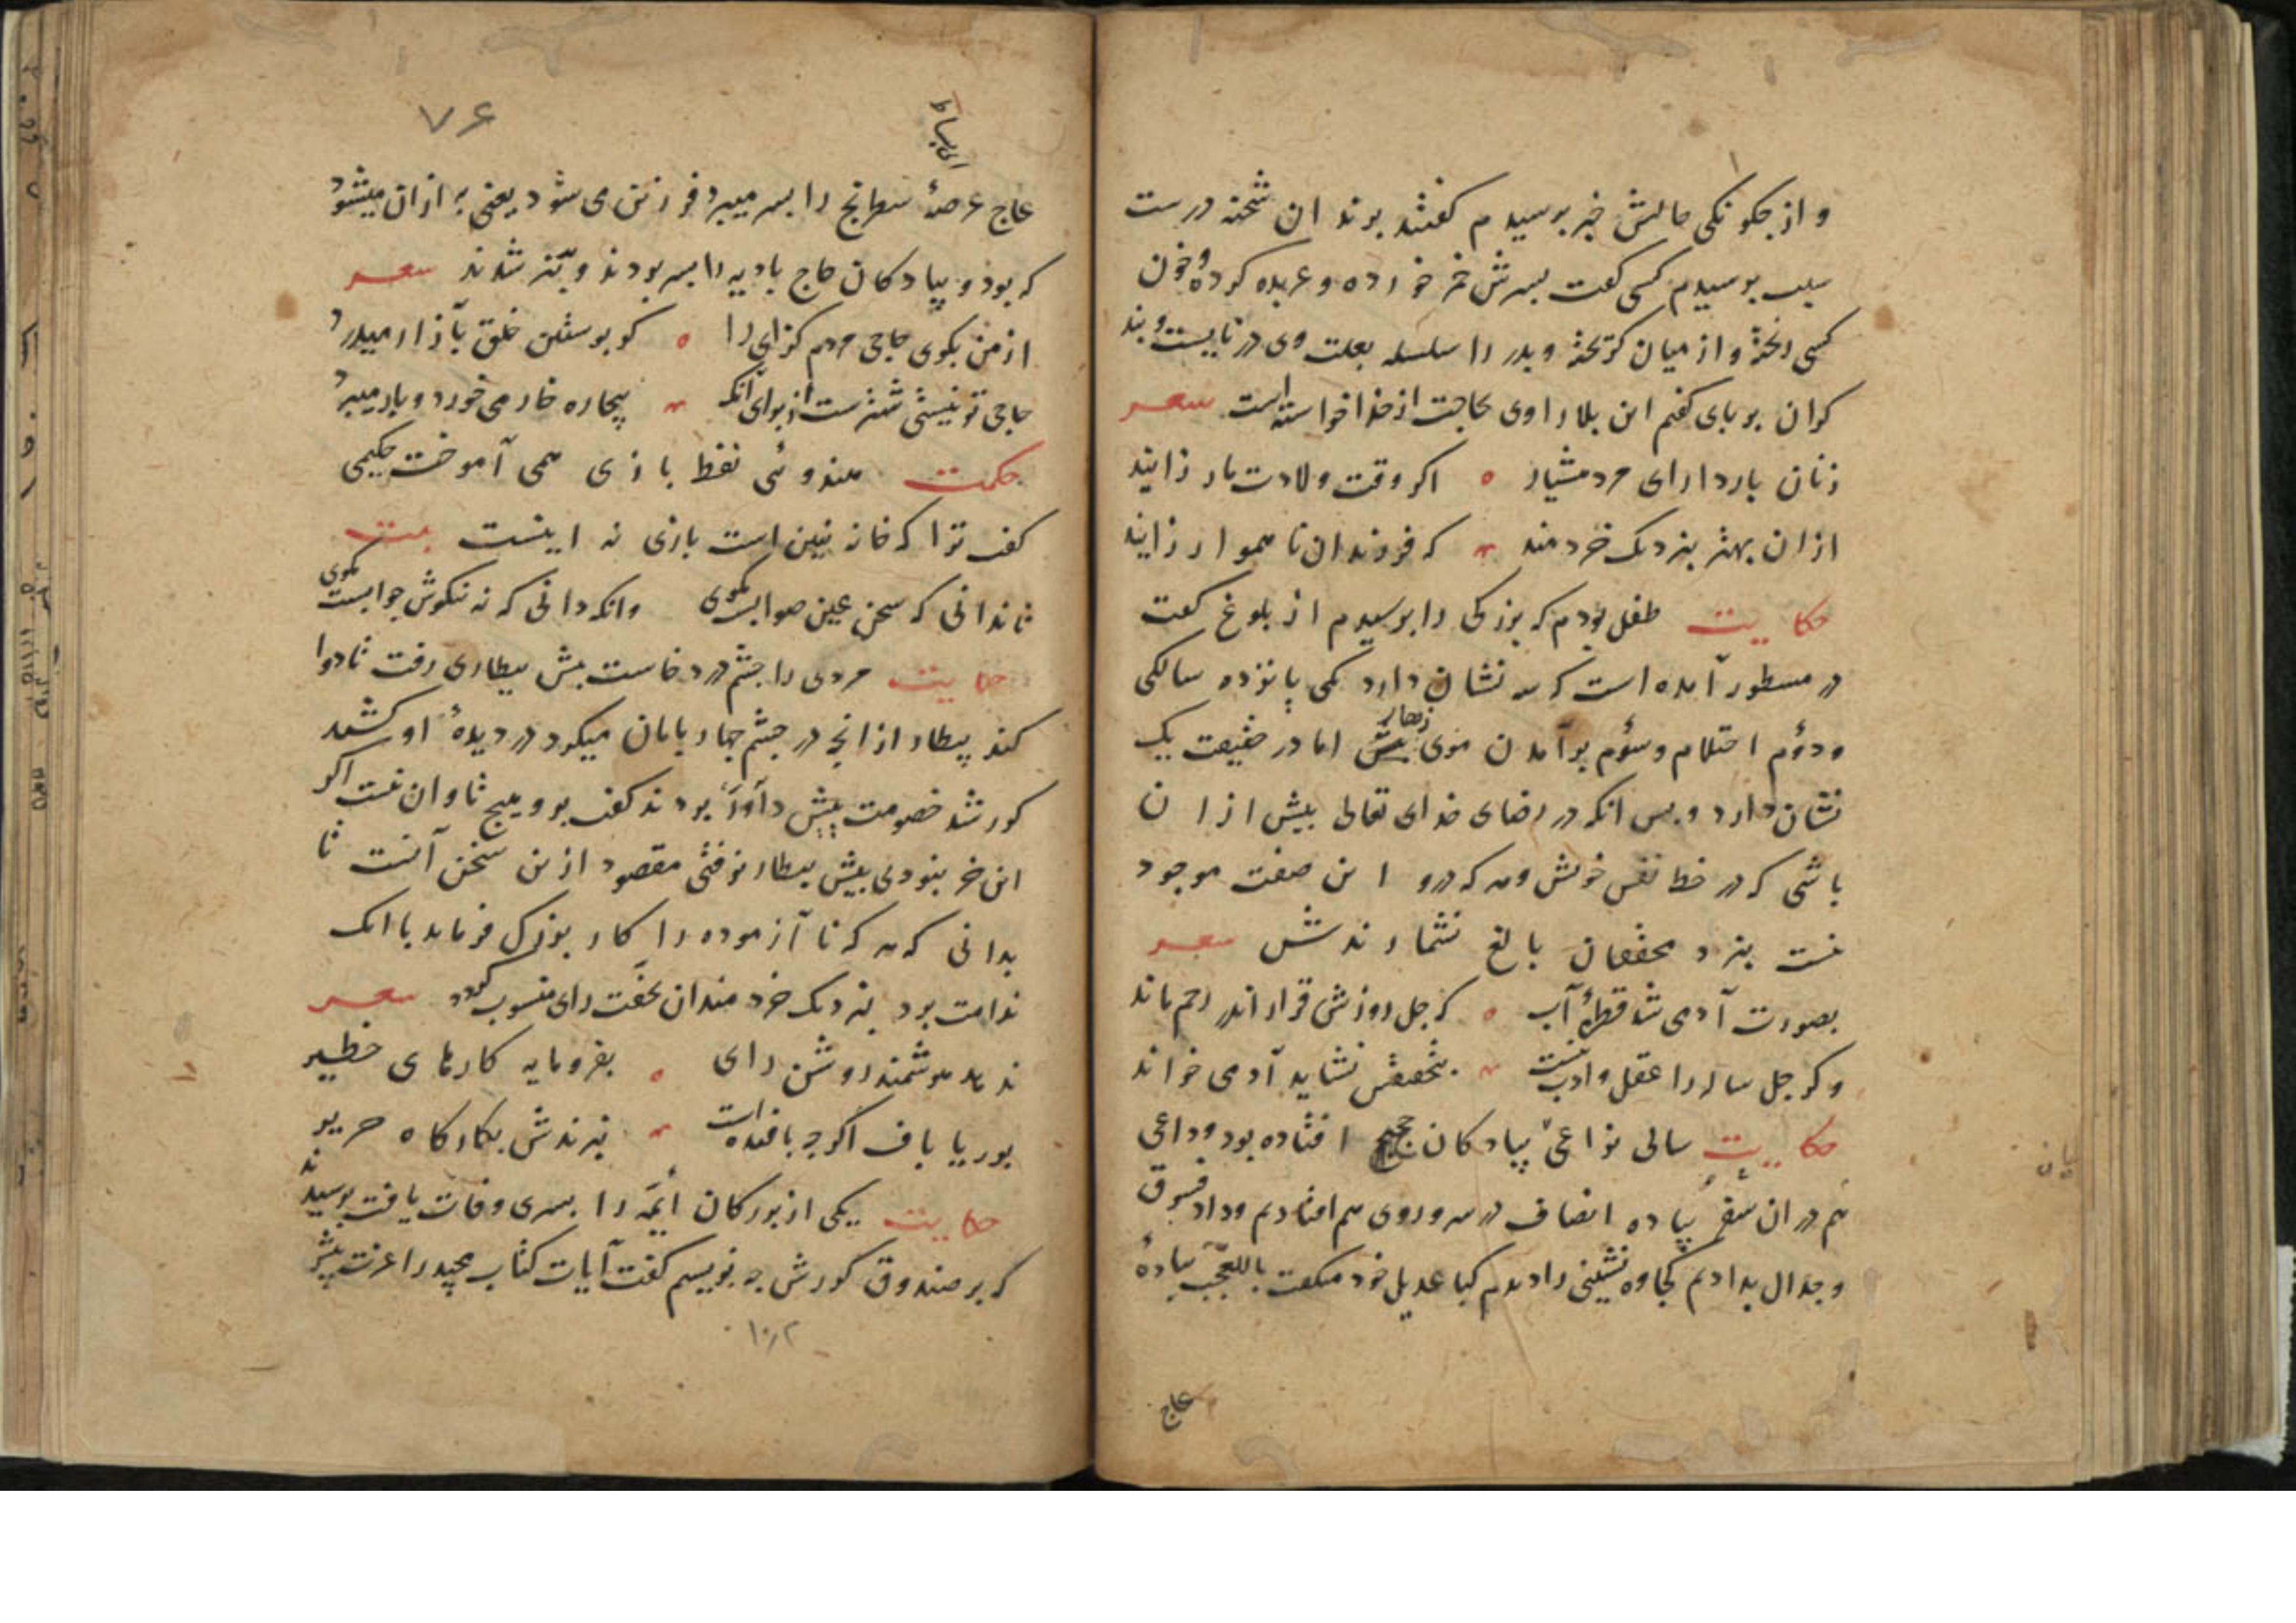 و از چکونکی حالش خبر پرسیدم کفتند بزندان شحنه درست
سبب پرسیدم کسی کفت پسرش خمر خورده و عربده کرده و خون
کسی ریخته و از میان کریخته و پدر را سلسله بعلت وی در نایست و بند
کران بر پای کفتم این بلا را وی بحاجت از خدا خواسته است شعر
زنان باردار ای مرد هشیار اکر وقت ولادت مار زایند
ازان بهتر بنزدیک خردمند که فرزندان ناهموار زایند
حکایت طفل بودم که بزرکی را پرسیدم از بلوغ کفت
در مسطور آمده است که سه نشان دارد یکی پانزده سالکی
و دوم احتلام و سوم برآمدن موی زهار پیش اما در حقیقت یک
نشان دارد و بس انکه در رضای خدای تعالی بیش ازان
باشی که در حظ نفس خویش و هر که درو این صفت موجود
نیست بنزد محققان بالغ نشمارندش شعر
بصورت آدمی شد قطرهٔ آب که چل روزش قرار اندر رحم ماند
وکر چل ساله را عقل و ادب نیست بتحقیقش نشاید آدمی خواند
حکایت سالی نزاعی پیادکان حجیج افتاده بود و داعی
هم در ان سفر پیاده انصاف در سر و روی هم افتادیم و داد فسوق
و جدال بدادیم کجاوه نشینی را دیدم که با عدیل خود میکفت یا للعجب پیادهٔ
عاج
۷۶
عاج عرصهٔ شطرنج را بسر میبرد فرزین می شود یعنی به ازان میشود
که بود و پیادکان حاج بادیه را بسر بردند و بتر شدند شعر
از من بکوی حاجی مردم کزای را کو پوستین خلق بآزار میدرد
حاجی تو نیستی شترست از برای انک بیچاره خار می خورد و بار میبرد
حکمت هندوئی نفط بازی همی آموخت حکیمی
کفت ترا که خانه نیین است بازی نه اینست بیت
تا ندانی که سخن عین صوابست مکوی وانکه دانی که نه نیکوش جوابست مکوی
حکایت مردی را چشم درد خاست پیش بیطاری رفت تا دوا
کند بیطار از انچه در چشم چهارپایان میکرد در دیدهٔ او کشید
کور شد خصومت پیش داور بردند کفت برو هیچ تاوان نیست اکر
این خر نبودی پیش بیطار نرفتی مقصود ازین سخن آنست تا
بدانی که هر که نا آزموده را کار بزرک فرماید با انک
ندامت برد بنزدیک خردمندان بخفت رای منسوب کردد شعر
ندهد هوشمند روشن رای بفرومایه کارهای خطیر
بوریا باف اکرچه بافنده است نبرندش بکارکاه حریر
حکایت یکی از بزرکان ائمه را پسری وفات یافت پرسیدند
که بر صندوق کورش چه نویسیم کفت آیات کتاب مجید را عزت بیشتر
۱۰٫۲